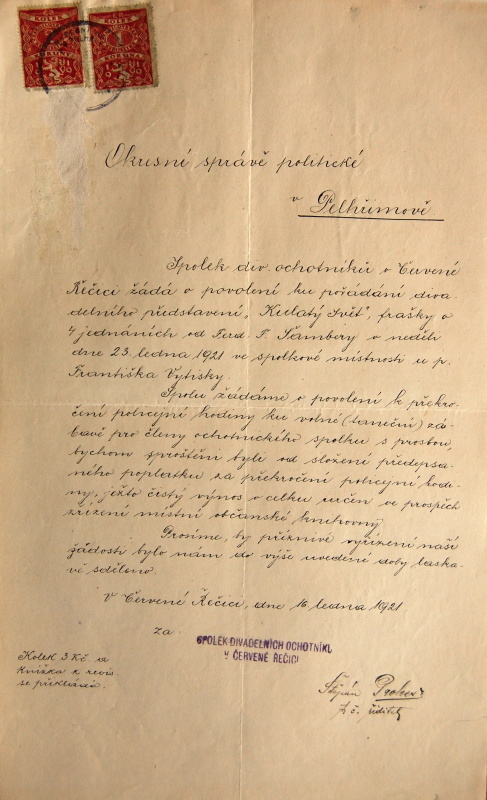 KOLEK
KOLEK
1
KORUNA
Okresní správě politické
v Pelhřimově
Spolek div. ochotníků v Červené
Řečici žádá o povolení ku pořádání diva-
delního představení „Kulatý Svět", frašky o
4 jednáních od Ferd. F. Šambery v neděli
dne 23. ledna 1921 ve spolkové místnosti u p.
Františka Vytisky.
Spolu žádáme o povolení k překro-
čení policejní hodiny ku volné (taneční) zá-
bavě pro členy ochotnického spolku s prosbou,
bychom sproštěni byli od složení předepsa-
ného poplatku za překročení policejní hodi-
ny, ježto čistý výnos v celku určen ve prospěch
zřízení místní občanské knihovny.
Prosíme, by příznivé vyřízení naší
žádosti bylo nám do výše uvedené doby laska-
vě sděleno.
V Červené Řečici, dne 16. ledna 1921
za
SPOLEK DIVADELNÍCH OCHOTNÍKŮ
V ČERVENÉ ŘEČICI
Kolek 3 Kč a
knížka k revis.
se překládá.
Štěpán
t. č. ředitel